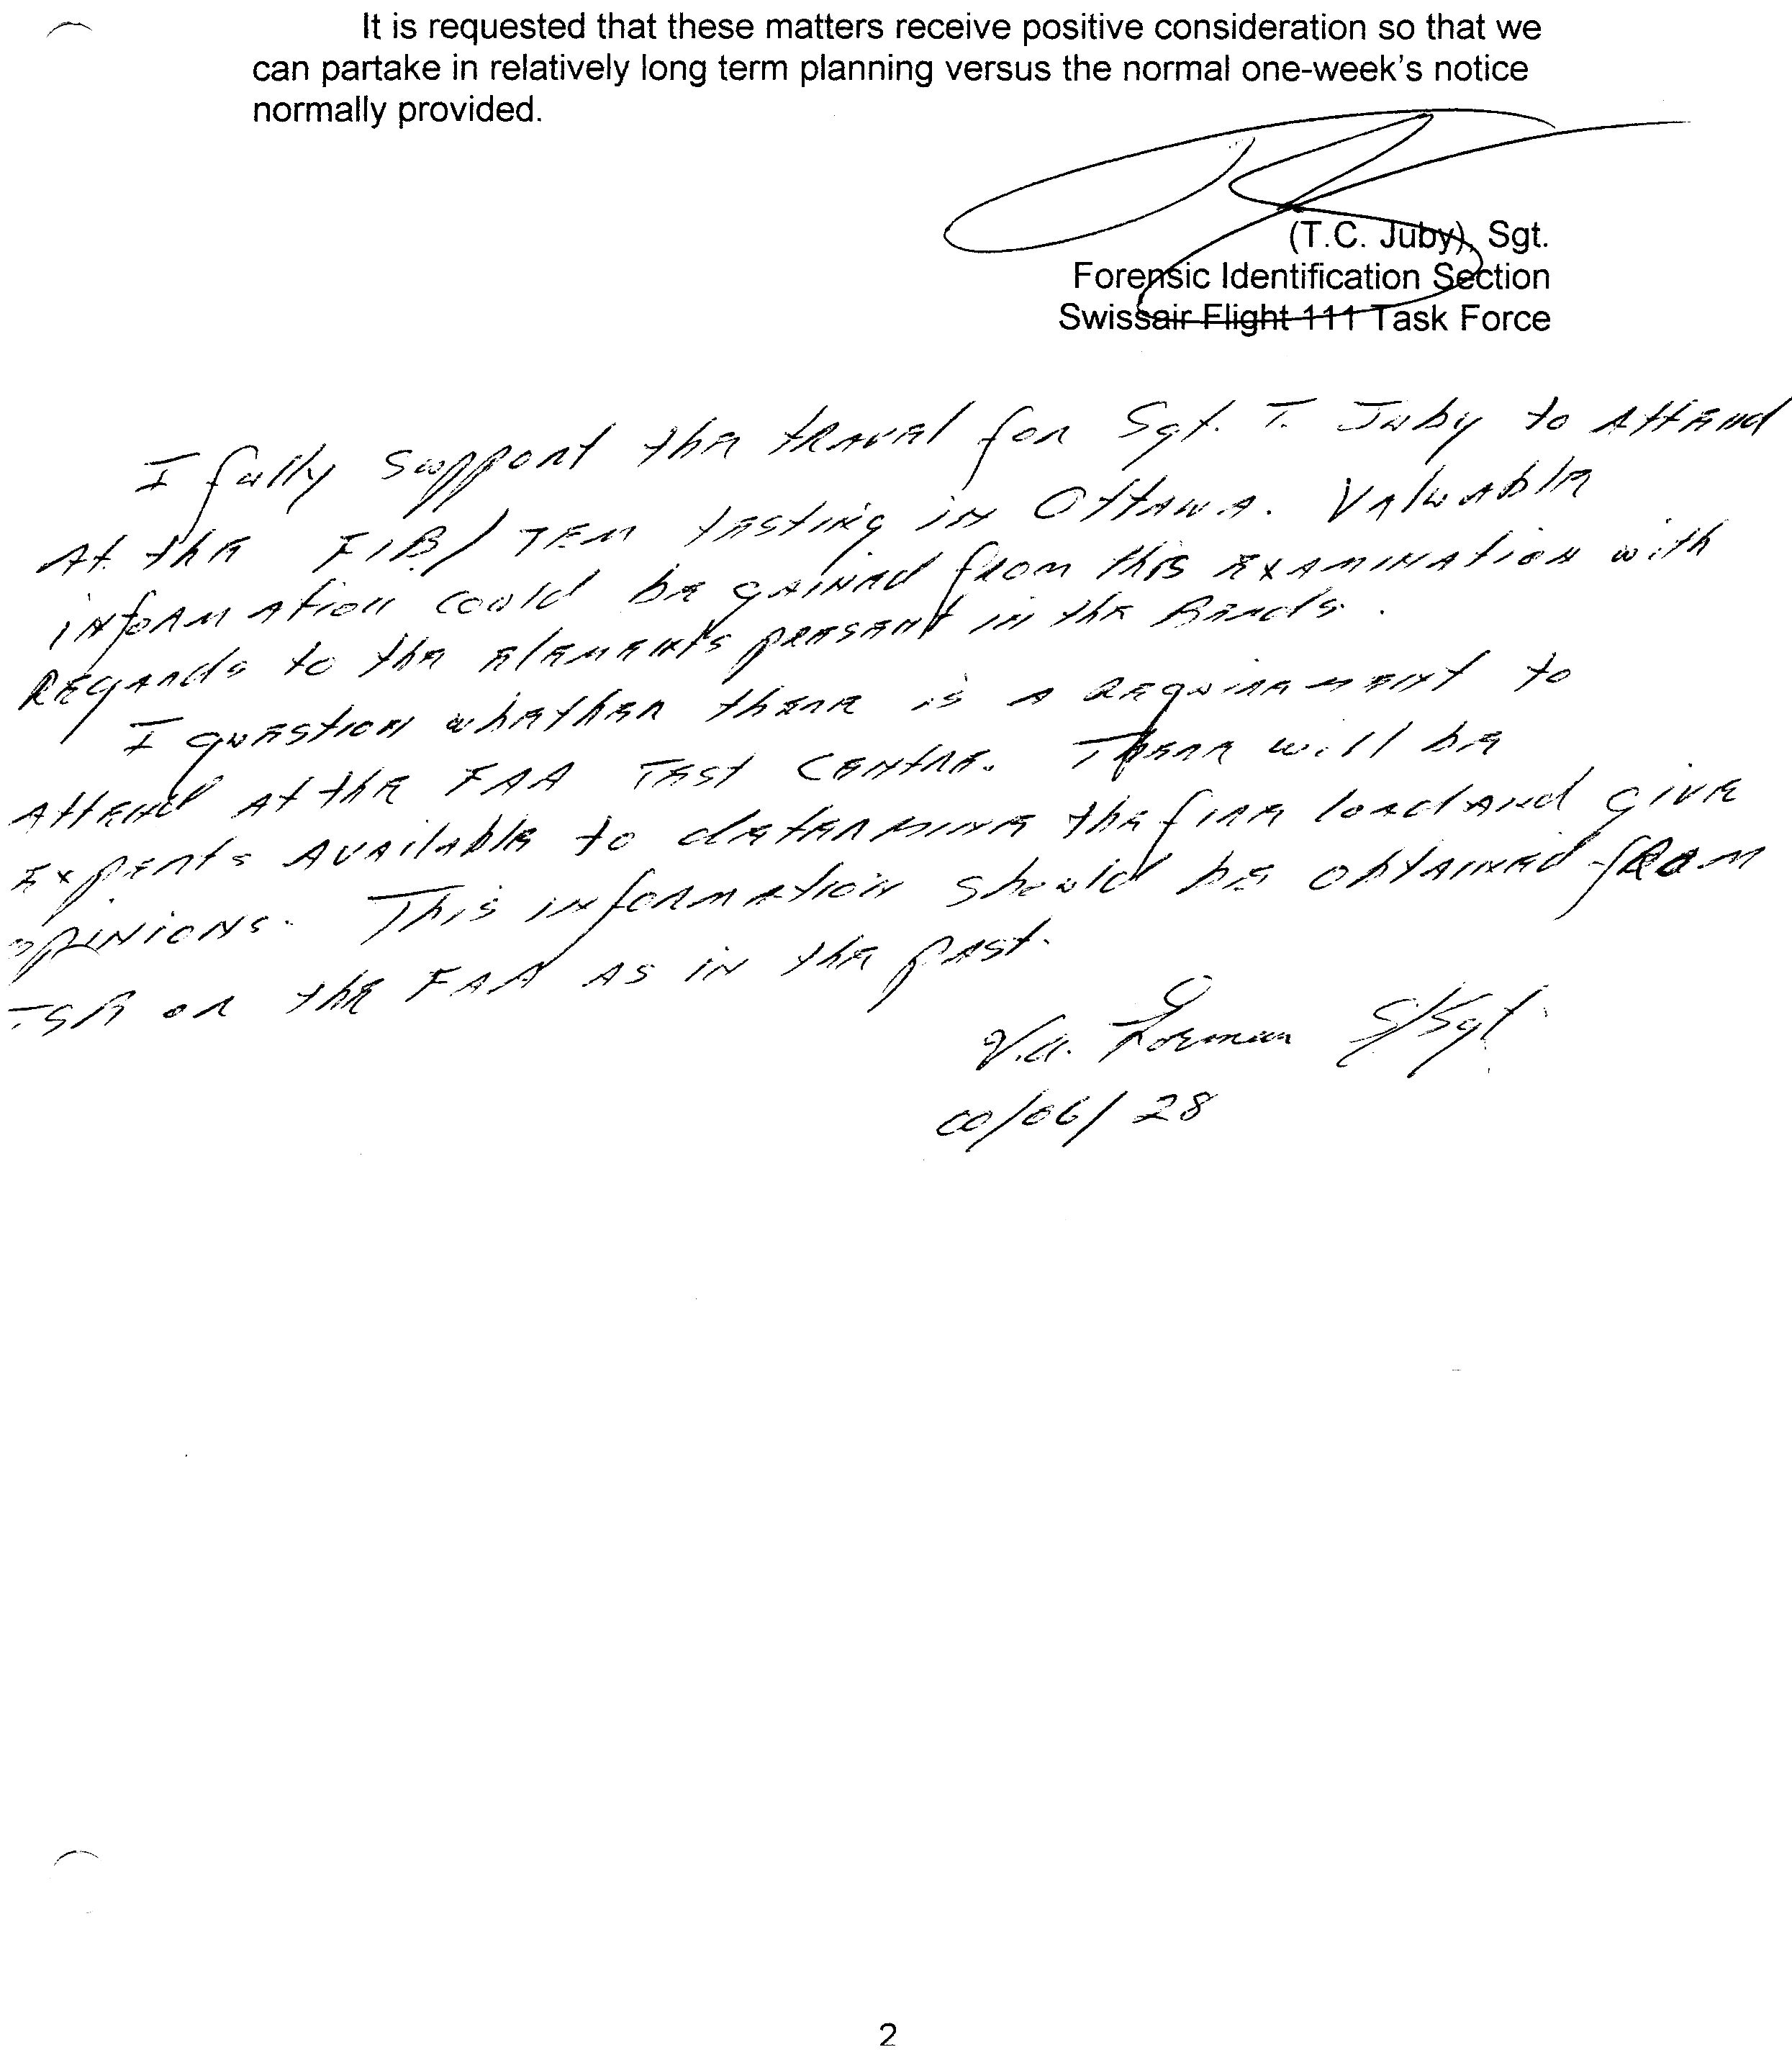 It is requested that these matters receive positive consideration so that we
can partake in relatively long term planning versus the normal one-week's notice
normally provided.
(T.C. Juby), Sgt.
Forensic Identification Section
Swissair Flight 111 Task Force
I fully support the travel for Sgt. T. Juby to attend
at the FIB/TEM testing in Ottawa. Valuable
information could be gained from this examination with
regards to the elements present in the Beads.
I question whether there is a requirement to
attend at the FAA Test Centre. There will be
experts available to determine the fire load and give
opinions. This information should be obtained from
TSB or the FAA as in the past.
V.A. Gorman S/Sgt
00/06/28
2